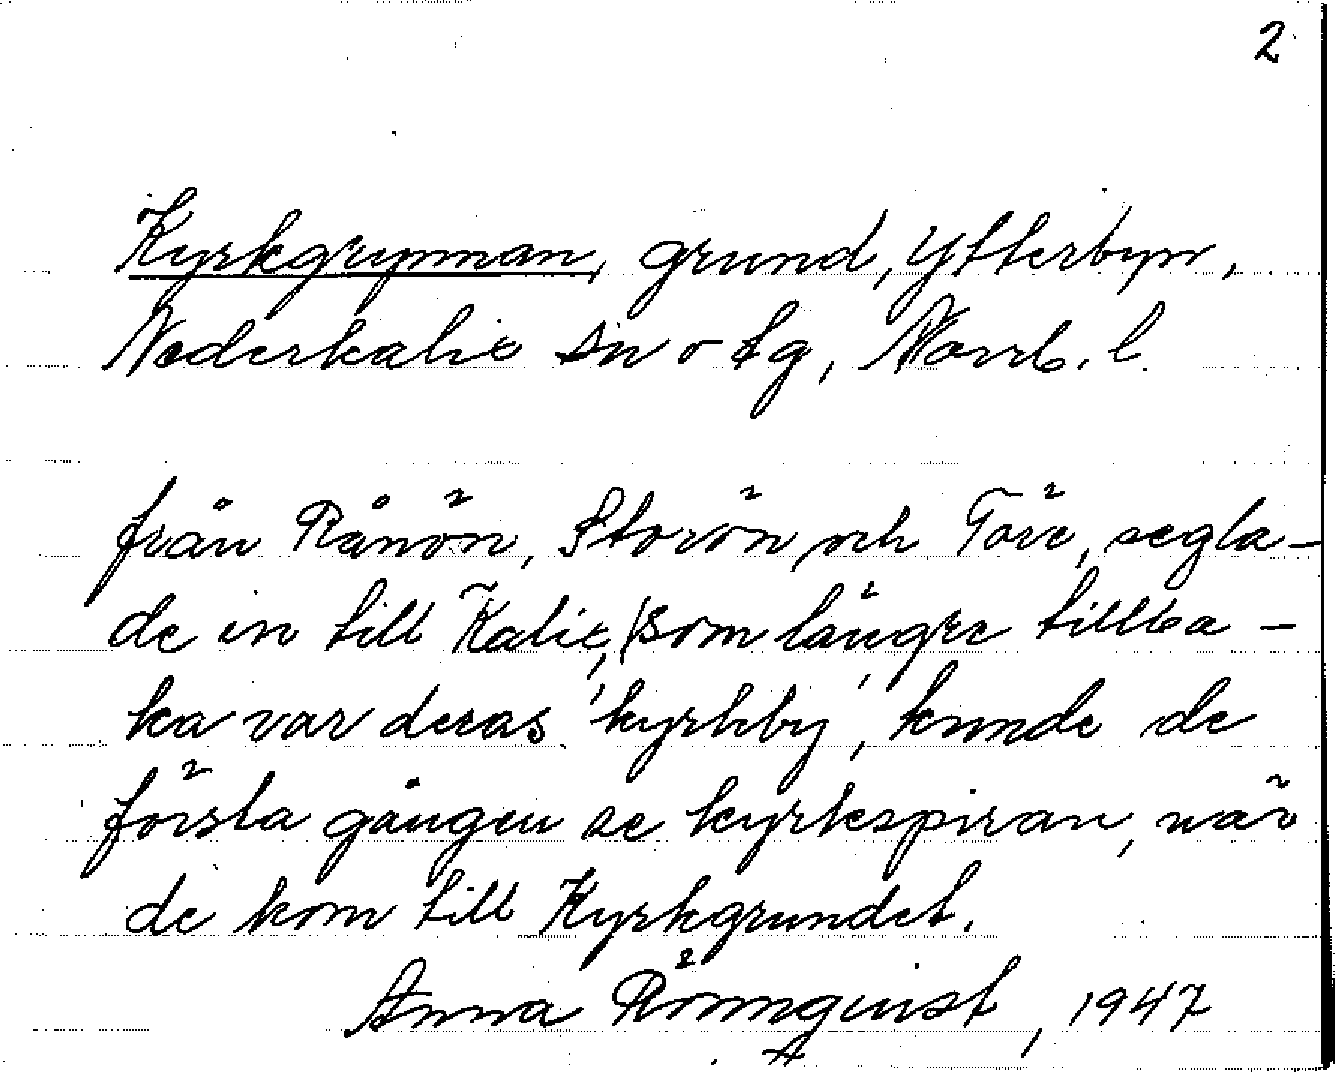 2
Kyrkgrynnan, grund, Ytterbyn,
Nederkalix sn o tg, Norrb. l.
från Rånön, Storön och Töre, segla-
de in till Kalix, (som längre tillba-
ka var deras kyrkby, kunde de
första gången se kyrkspiran, när
de kom till Kyrkgrundet.
Anna Römquist, 1947